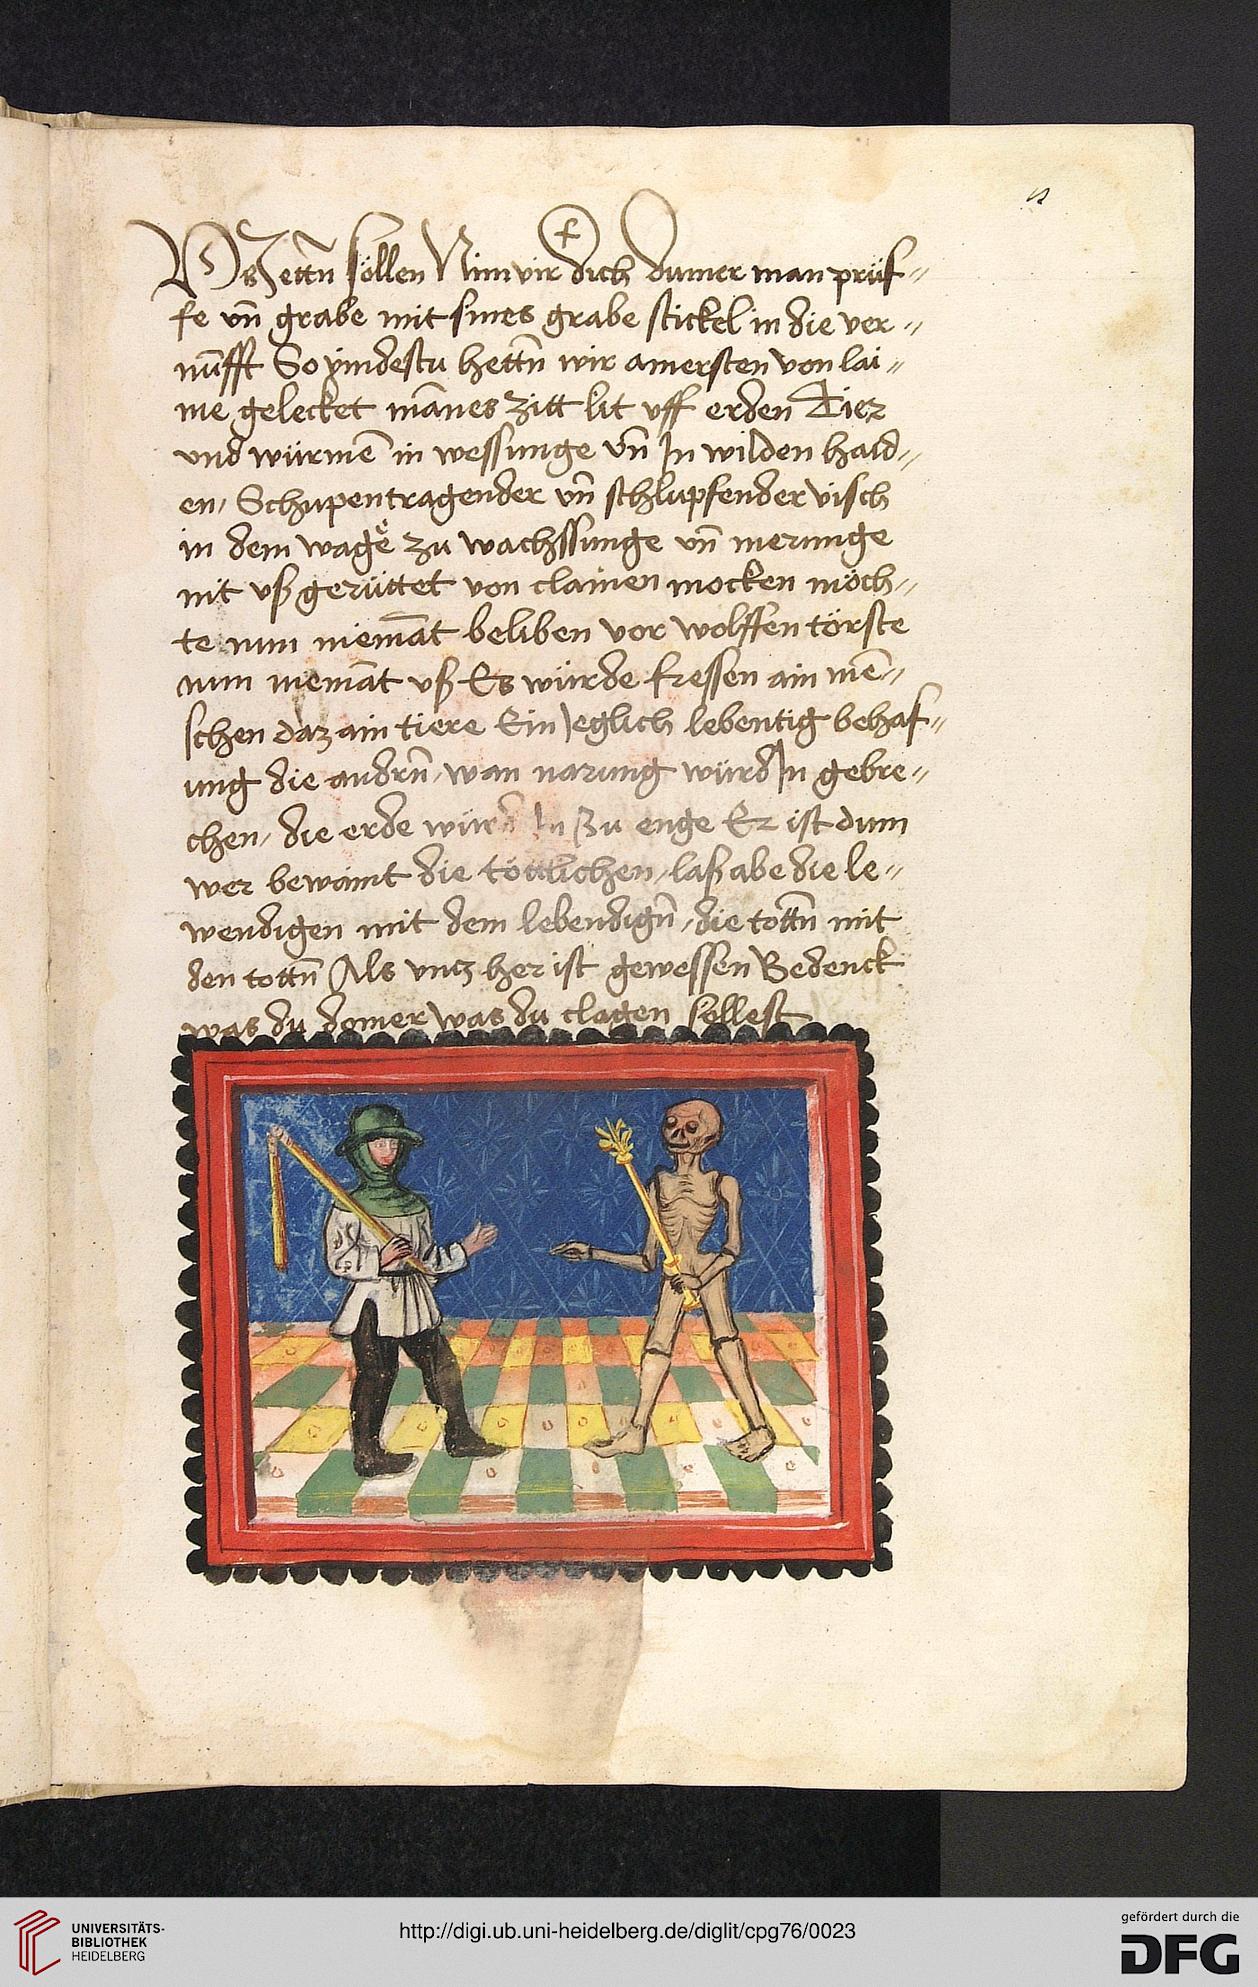 Vs Jettn̄ söllen Nim vir dich dumer man prüf〃
fe vn̄ grabe mit sines grabe stickel in die ver〃
nūfft So vindestu hettn̄ wir amersten von lai〃
me gelecket mānes zitt lit vff erden Tier
vnd würmē in wessunge vn̄ In wilden haid〃
en, Schupentragender vn̄ schlupfender visch
in dem wage zu wachssunge vn̄ merunge
nit vß gerüttet von clainen mocken möch〃
te nun niemāt beliben vor wolffen törste
nun niemāt vß Es würde fressen ain mē〃
schen daz ain tiere Ein Jeglich lebentig behaf〃
ung die andrn̄, wan narung würd In gebre〃
chen, die erde würd In zu enge Er ist dum
wer bewaint die töttlichen, laß abe die le〃
wendigen mit dem lebendign̄, die tottn̄ mit
den tottn̄ Als vncz her ist gewessen Bedenck
was du domer was du clagen söllest
UNIVERSITÄTS-
BIBLIOTHEK
HEIDELBERG
http://digi.ub.uni-heidelberg.de/diglit/cpg76/0023
gefördert durch die
DFG